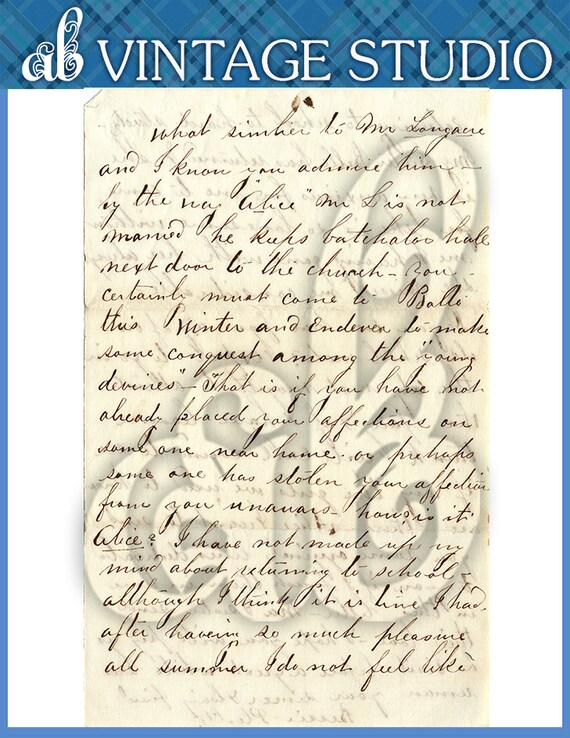 ab VINTAGE STUDIO
what similier to Mr Longacre
and I know you admire him -
by the way "Alice" Mr L is not
married he keeps batchalor hall
next door to the church - you
certainly must come to Balto
this Winter and Endever to make
some conquest among the "young
devines" - That is if you have not
already placed your affections on
some one near home. or perhaps
some one has stolen your affection
from you unawars how is it
Alice? I have not made up my
mind about returning to school -
although I think it is time I had.
after haveing so much pleasure
all summer I do not feel like